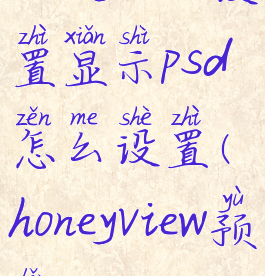 zhì xiǎn shì
置显示psd
zěn me shè zhì
怎么设置(
yù
honeyview预